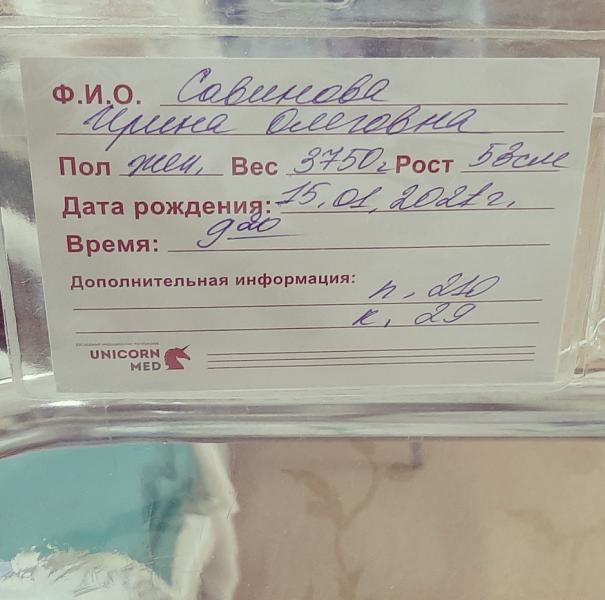 Ф.И.О. Савинова
Ирина Олеговна
Пол жен. Вес 3750г Рост 53см
Дата рождения: 15.01.2021г.
Время: 9 20
Дополнительная информация:
п. 210
к. 29
UNICORN
MED